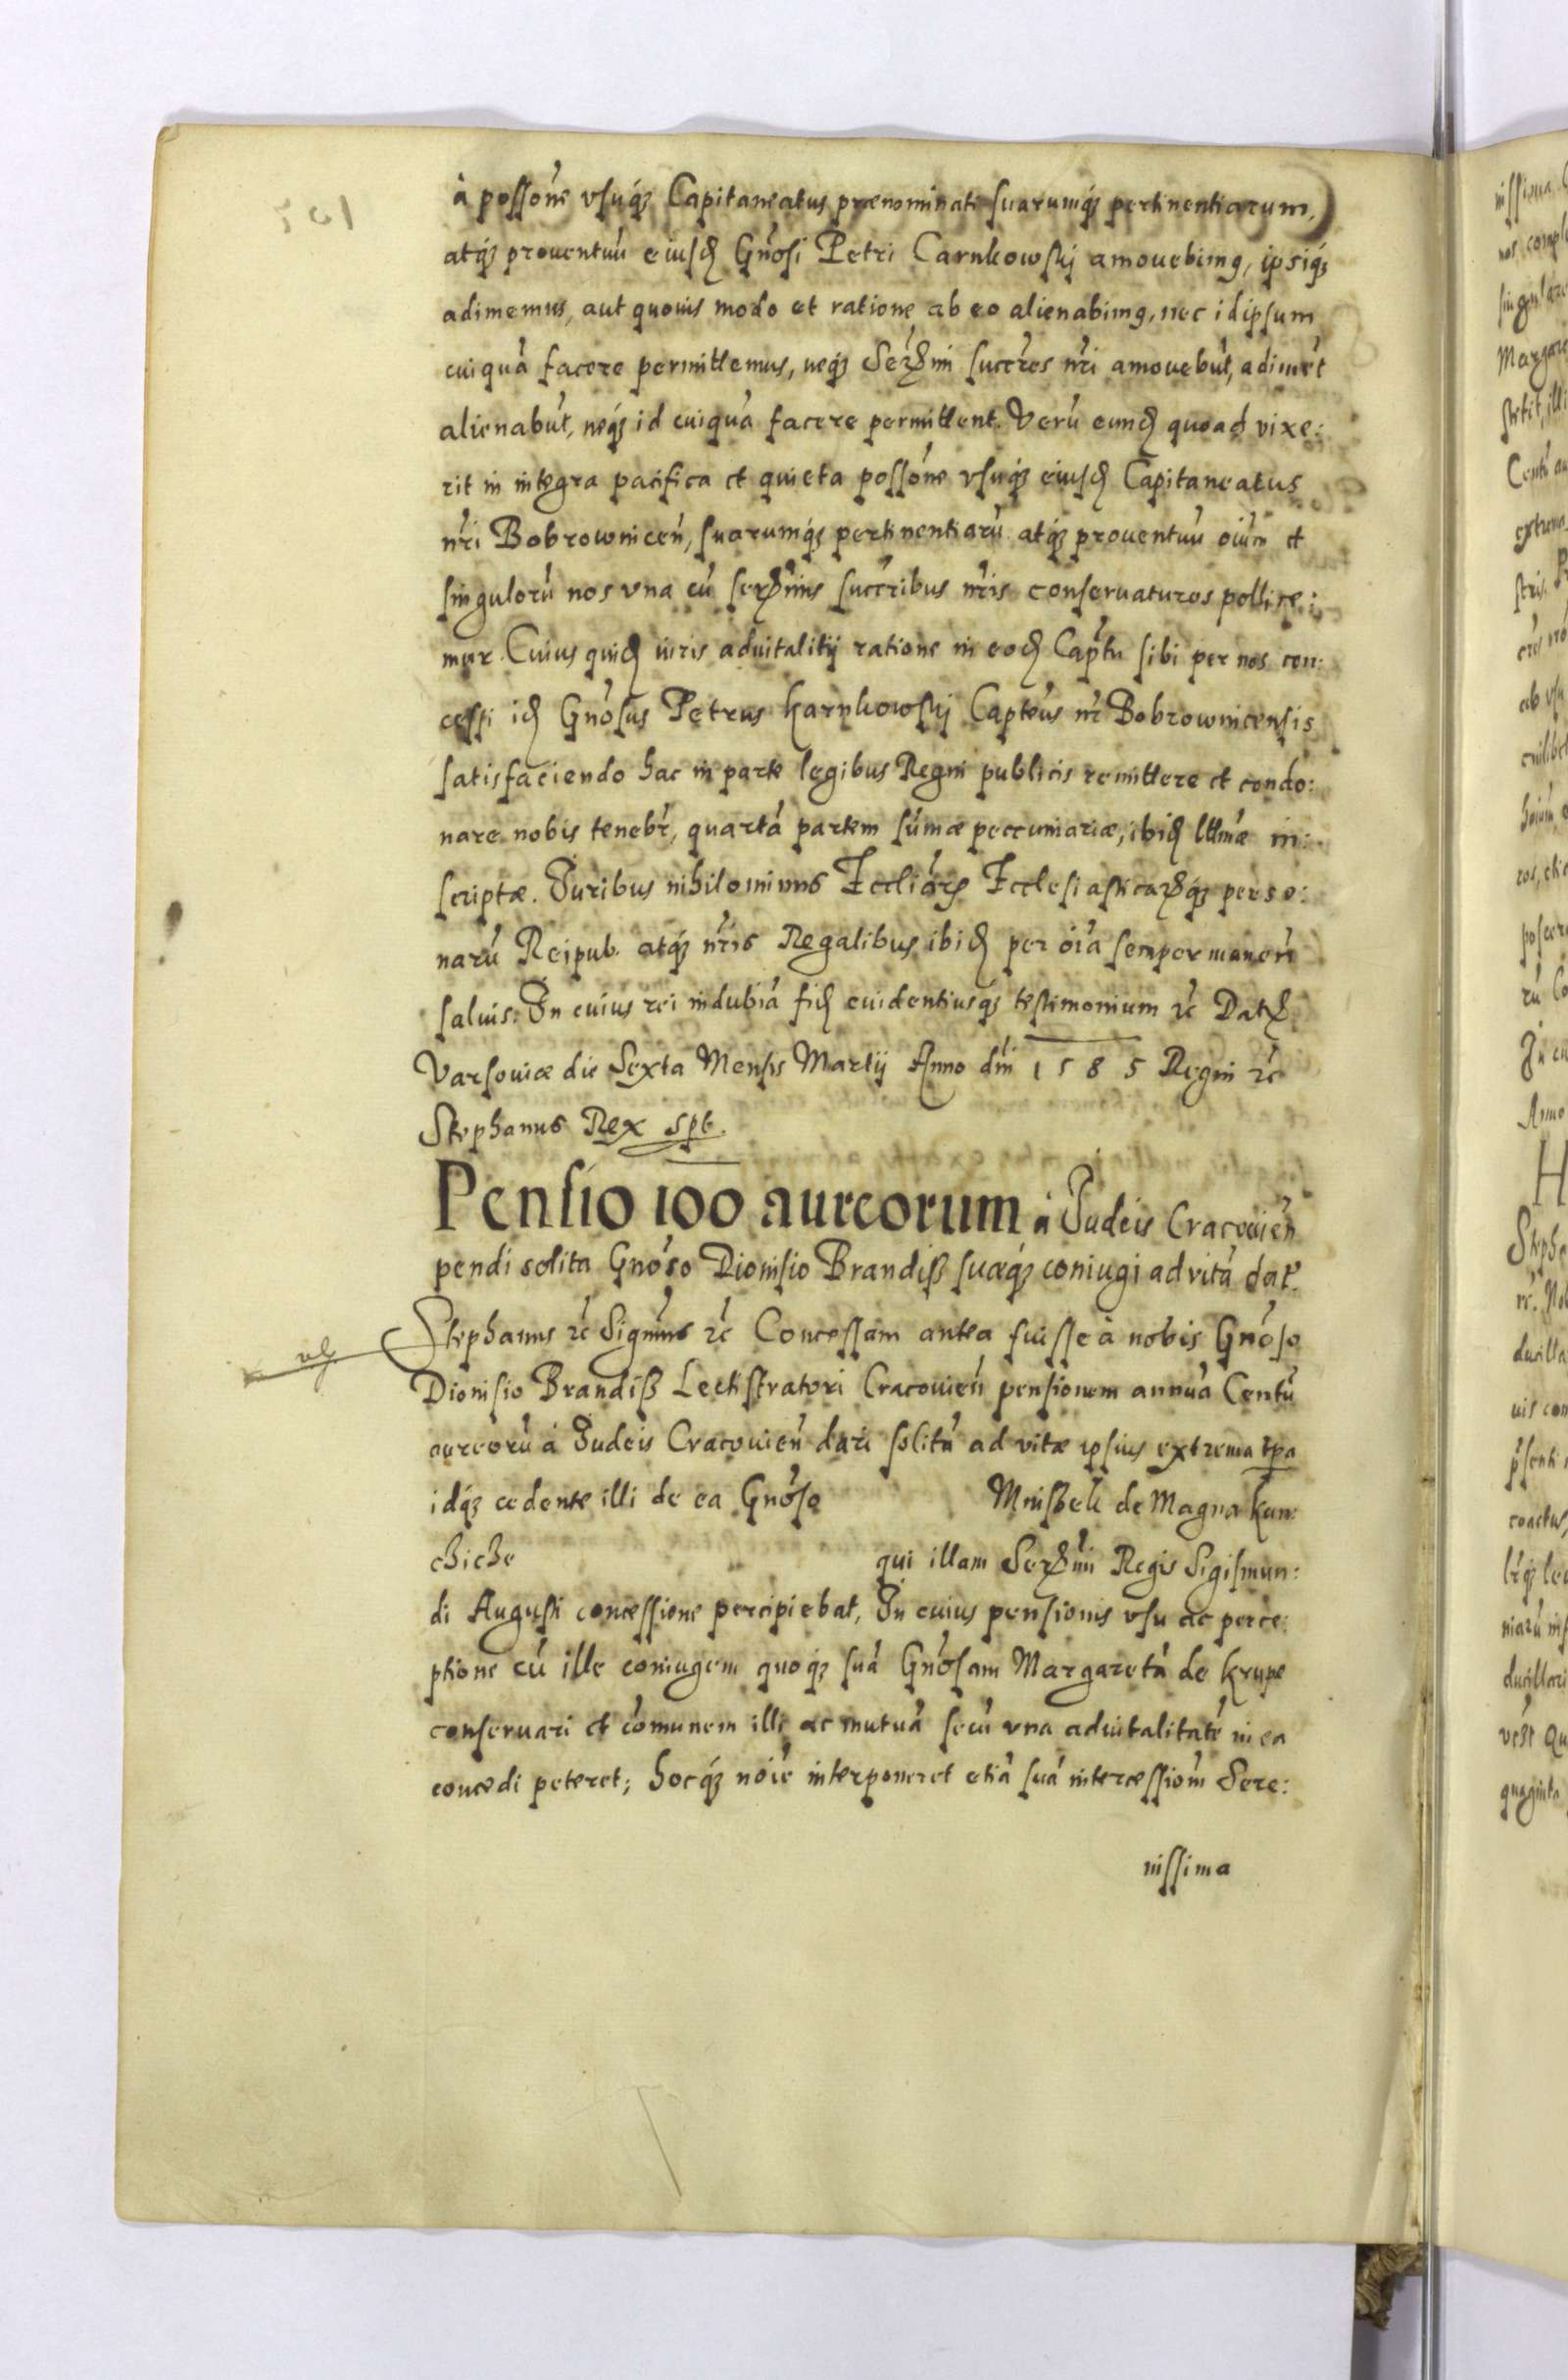 à possone vsuq́ʒ Capitaneatus prænominati suarumq́ʒ pertinentiarum,
atq́ʒ prouentuū eiusd Gnosi Petri Carnkowskj amouebimg, ipsiq́ʒ
adimemus, aut quouis modo et ratione ab eo alienabimg, nec idipsum
cuiquā facere permittemus, neq́ʒ Serꝝmi succres nr̄i amouebūt, adimēt
alienabūt, neq́ʒ id cuiquā facere permittent. Verū eund quoad vixe:
rit in integra pacifica et quieta possone vsuq́ʒ eiusd Capitaneatus
nr̄i Bobrownicen̄, suarumq́ʒ pertinentiarū atq́ʒ prouentuū oiūm et
singulorū nos vna cū serꝝmis succribus nr̄is conseruaturos pollice:
mur. Cuius quid iuris aduitalitij ratione in eod Capt̄u sibi per nos con:
cessi id Gnosus Petrus Karnkowskj Capteus nr̄ Bobrownicensis
satisfaciendo hac in parte legibus Regni publicis remittere et condo:
nare nobis tenebr̄, quartā partem sūmæ peccuniariæ, ibid lttimæ in:
scriptæ. Iuribus nihilominus Eccliarꝝ Ecclesiasticarꝝq́ʒ perso:
narū Reipub. atq́ʒ nr̄is Regalibus ibid per oīa semper manen̄
saluis. In cuius rei indubiā fid euidentiusq́ʒ testimonium ꝛc Datꝝ
Varsouiæ die Sexta Mensis Martij Anno dn̄i 1585 Regni ꝛc
Stephanus Rex spt.
Pensio 100 aureorum à Iudeis Cracouien̄
pendi solita Gnoso Dionisio Brandiß suæq́ʒ coniugi ad vitā dat̄.
Stephanus ꝛc Signim̄s ꝛc Concessam antea fuisse à nobis Gnoso
Dionisio Brandiß Lectistratori Cracouien̄ pensionem annuā Centū
aureorū à Iudeis Cracouien̄ dari solitā ad vitæ ipsius extrema tp̄a
idq́ʒ cedente illi de ea Gnoso Mnißek de Magna Kun:
chiche qui illam Serꝝmi Regis Sigismun:
di Augusti concessione percipiebat, In cuius pensionis vsu ac perce:
ptione cū ille coniugem quoq́ʒ suā Gnosam Margaretā de Krupe
conseruari et cōmunem illi ac mutuā secū vna aduitalitatē in ea
concedi peteret; hocq́ʒ noīe interponeret etiā suā intercessiōm Sere:
nissima